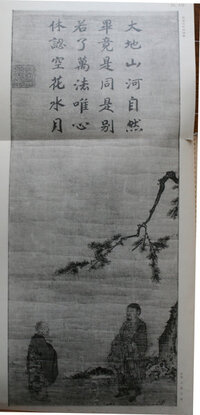 大地山河自然
畢竟是同是别
若了萬法唯心
休認空花水月